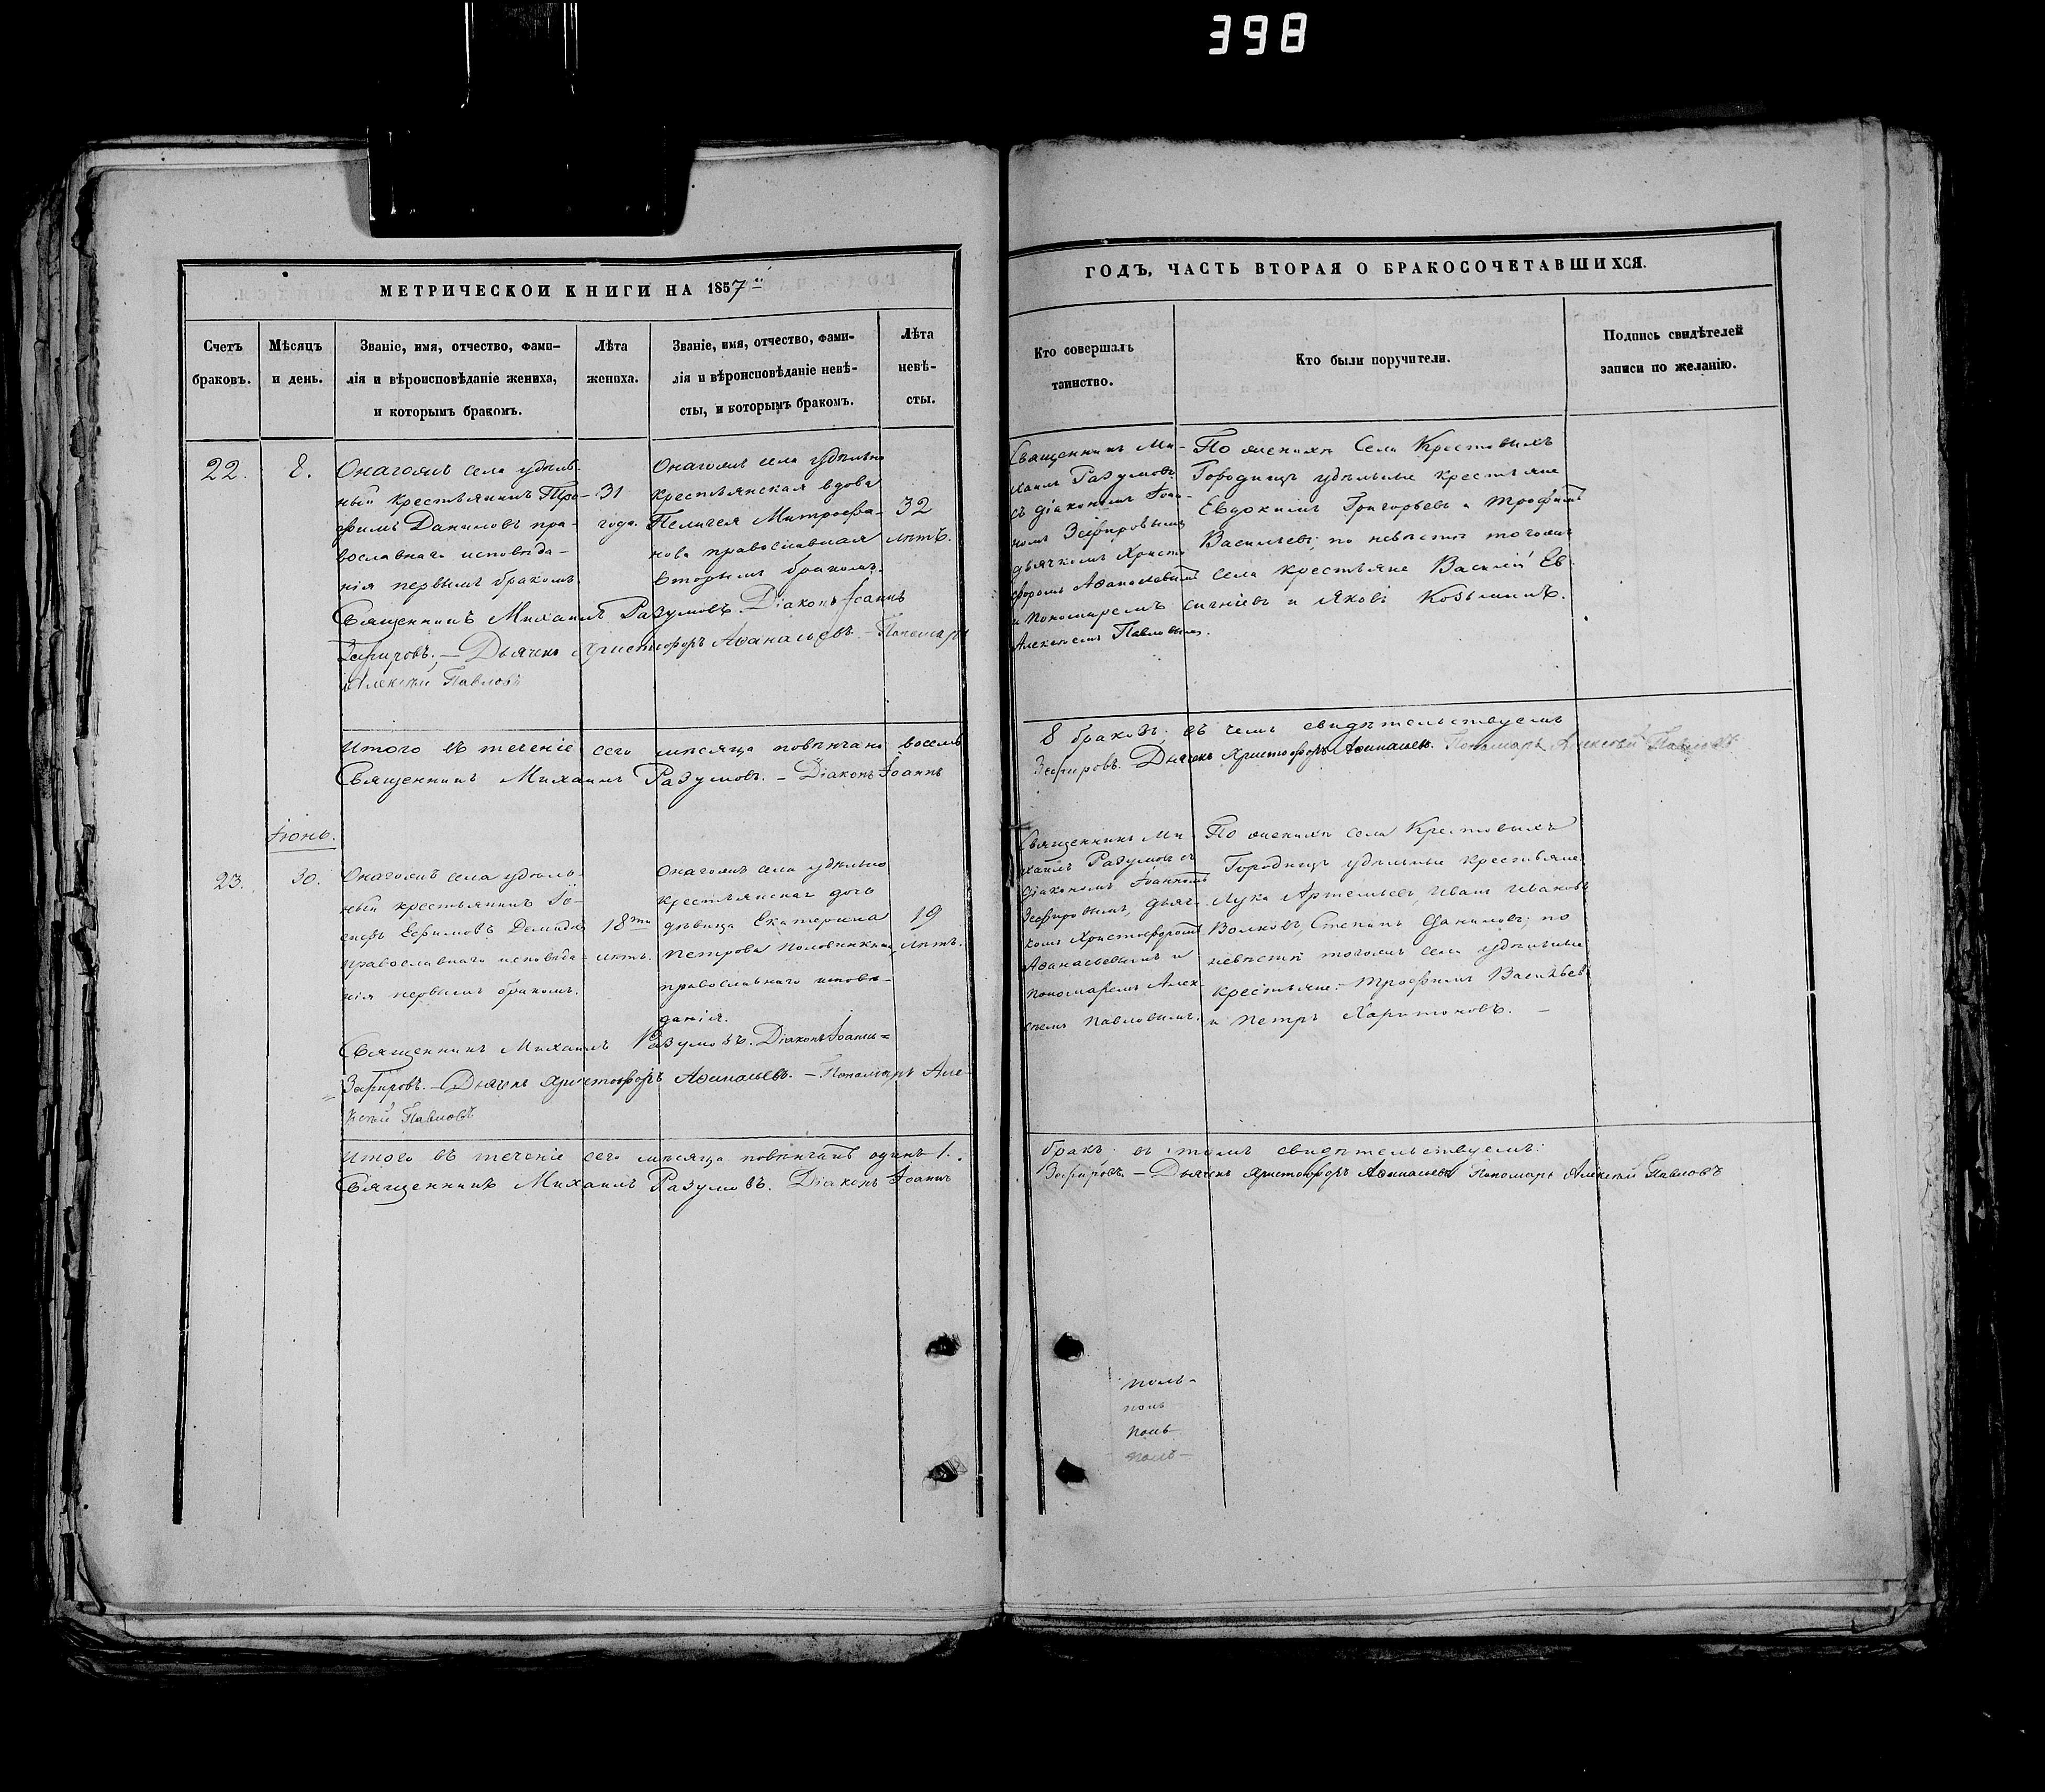 398
МЕТРИЧЕСКОЙ КНИГИ НА 1857й
Счетъ браковъ.
Мѣсяцъ и день.
Званіе, имя, отчество, фами-
лія и вѣроисповѣданіе жениха,
и которымъ бракомъ.
Лѣта
жениха.
Званіе, имя, отчество, фами-
лія и вѣроисповѣданіе невѣ-
сты, и которымъ бракомъ.
Лѣта
невѣ-
сты.
22.
8.
Онагожъ села удѣль-
ный крестьянинъ Тро-
фимъ Даниловъ пра-
вославнаго исповѣда-
нія первымъ бракомъ.
31
года.
Онагожъ села удѣльно
крестьянская вдова
Пелагея Митрофа-
нова православная
вторымъ бракомъ.
32
лѣтъ.
Священникъ Михаилъ Разумовъ. Діаконъ Іоаннъ
Зефировъ. — Дьячекъ Христофоръ Аѳанасьевъ. — Пономарь
Алексѣй Павловъ
Итого въ теченіе сего мѣсяца повѣнчано восемь
Священникъ Михаилъ Разумовъ. — Діаконъ Іоаннъ
Іюнь.
23.
30.
Онагожъ села удѣль-
ный крестьянинъ Іо-
сифъ Ефимовъ
православнаго исповѣда-
нія первымъ бракомъ.
18ти
лѣтъ.
Онагожъ села удѣльно
крестьянская дочь
дѣвица Екатерина
Петрова
православнаго исповѣ-
данія.
19
лѣтъ.
Священникъ Михаилъ Разумовъ. Діаконъ Іоаннъ =
= Зефировъ. — Дьячекъ Христофоръ Аѳанасьевъ. — Пономарь Але-
ксѣй Павловъ
Итого въ теченіе сего мѣсяца повѣнчанъ одинъ 1.
Священникъ Михаилъ Разумовъ. Діаконъ Іоаннъ
ГОДЪ, ЧАСТЬ ВТОРАЯ О БРАКОСОЧЕТАВШИХСЯ.
Кто совершалъ
таинство.
Кто были поручители.
Подпись свидѣтелей
записи по желанію.
Священникъ Ми-
хаилъ Разумовъ
съ діакономъ Іоан-
номъ Зефировымъ
дьячкомъ Христо
форомъ Аѳанасьевымъ
и Пономаремъ
Алексѣемъ Павловымъ.
По женихѣ Села Крестовыхъ
Городищъ удѣльные крестьяне
Евдокимъ Григорьевъ и Трофимъ
Васильевъ; по невѣстѣ тогожъ
села крестьяне Василій Ев
сигнѣевъ и Яковъ Козьминъ.
8 браковъ; въ чемъ свидѣтельствуемъ
Зефировъ. Дьячекъ Христофоръ Аѳанасьевъ. Пономарь Алексѣй Павловъ.
Священникъ Ми-
хаилъ Разумовъ съ
діакономъ Іоанномъ
Зефировымъ, дьяч-
комъ Христофоромъ
Аѳанасьевымъ и
пономаремъ Алек-
сѣемъ Павловымъ.
По женихѣ села Крестовыхъ
Городищъ удѣльные крестьяне
Лука Артемьевъ, Иванъ Ивановъ
Волковъ, Степанъ Даниловъ; по
невѣстѣ тогожъ села удѣльные
крестьяне: — Трофимъ Васильевъ
и Петръ Харитоновъ. —
бракъ въ томъ свидѣтельствуемъ:
Зефировъ. — Дьячекъ Христофоръ Аѳанасьевъ Пономарь Алексѣй Павловъ